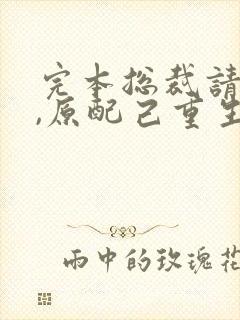 完本总裁請
,原配已重生
雨中的玫瑰花